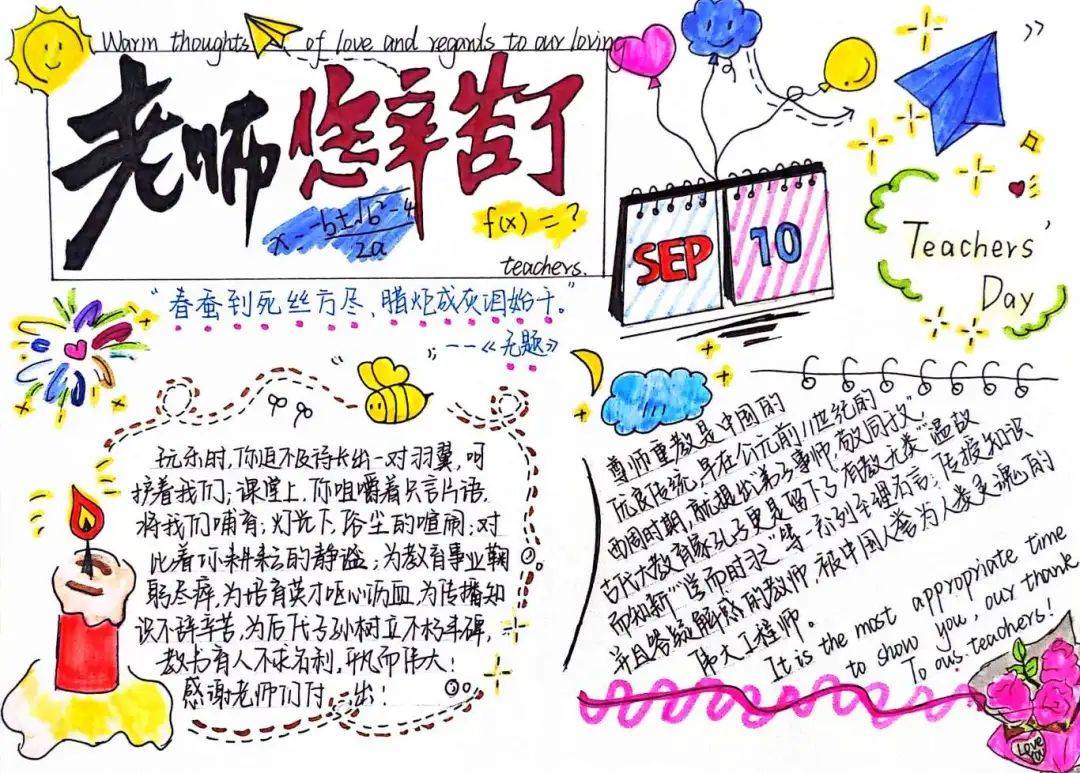 Warm thoughts of love and regards to our loving
老师您辛苦了
x=-b±√b²-4
2a
f(x)=?
teachers.
SEP
10
Teachers'
Day
“春蚕到死丝方尽、腊炬成灰泪始干。”
——《无题》
玩乐时,你迫不及待长出一对羽翼,呵
护着我们;课堂上,你咀嚼着只言片语,
将我们哺育;灯光下,俗尘的喧闹,对
比着你耕耘的静谧;为教育事业鞠
躬尽瘁,为培育英才呕心沥血,为传播知
识不辞辛苦,为后代子孙树立不朽丰碑,
教书育人不求名利,平凡而伟大!
感谢老师们付出!
尊师重教是中国的
优良传统,早在公元前11世纪的
西周时期,就提出“弟子事师,敬同父”
古代大教育家孔子更是留下了“有教无类”“温故
而知新”“学而时习之”等一系列至理名言。传授知识
并且答疑解惑的教师,被中国人誉为人类灵魂的
伟大工程师。
It is the most appropriate time
to show you, our thank
To ous. teachers!
Love